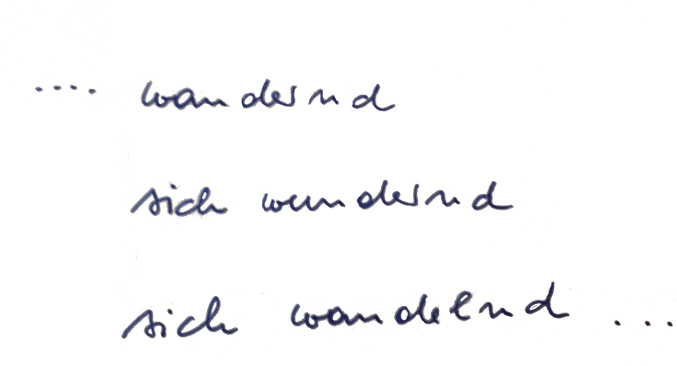 .... wandernd
sich wundernd
sich wandelnd ...